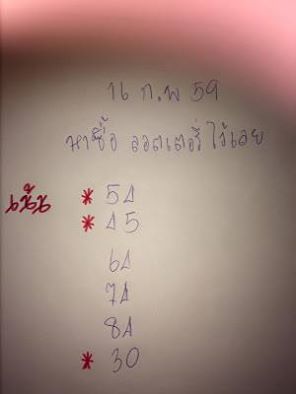 16 ก.พ 59
หาซื้อ ลอตเตอรี่ ไว้เลย
เน้น * 54
* 45
64
74
84
* 30